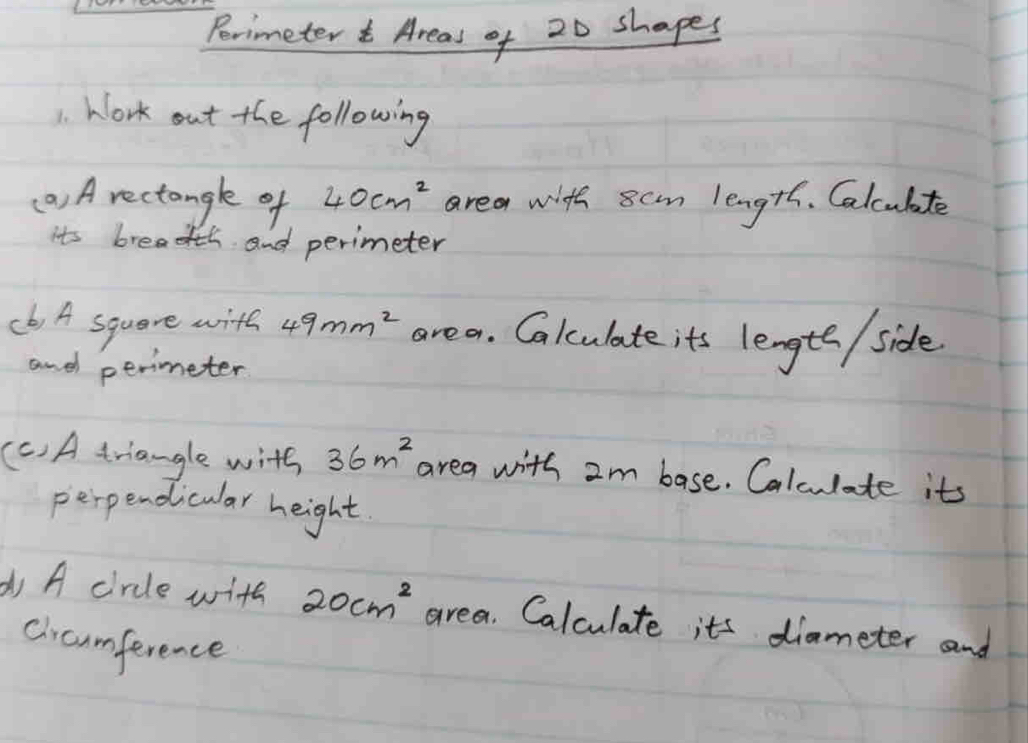 Homework
Perimeter & Areas of 2D shapes
1. Work out the following
(a) A rectangle of 40cm² area with 8cm length. Calculate
its breadth and perimeter
(b) A square with 49mm² area. Calculate its length/side
and perimeter
(c) A triangle with 36m² area with 2m base. Calculate its
perpendicular height.
d) A circle with 20cm² area. Calculate its diameter and
circumference